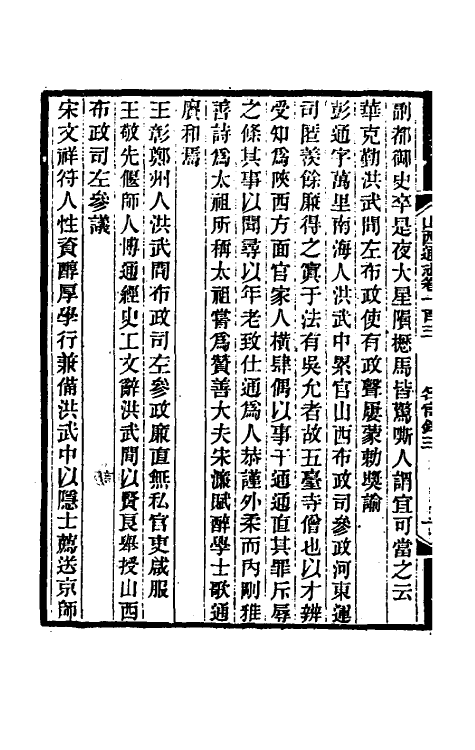 副都御史卒是夜大星隕櫪馬皆驚嘶人謂宜可當之云
華克勤洪武間左布政使有政聲屢蒙勅獎諭
彭通字萬里南海人洪武中累官山西布政司參政河東運
司匿羨餘廉得之寘于法有吳允者故五臺寺僧也以才辨
受知爲陝西方面官家人橫肆偶以事干通通直其罪斥辱
之條其事以聞尋以年老致仕通爲人恭謹外柔而內剛雅
善詩爲太祖所稱太祖嘗爲贊善大夫宋濂賦醉學士歌通
賡和焉
王彰鄭州人洪武間布政司左參政廉直無私官吏咸服
王敬先偃師人博通經史工文辭洪武間以賢良舉授山西
布政司左參議
宋文祥符人性資醇厚學行兼備洪武中以隱士薦送京師
山西通志卷一百三
名宦錄三